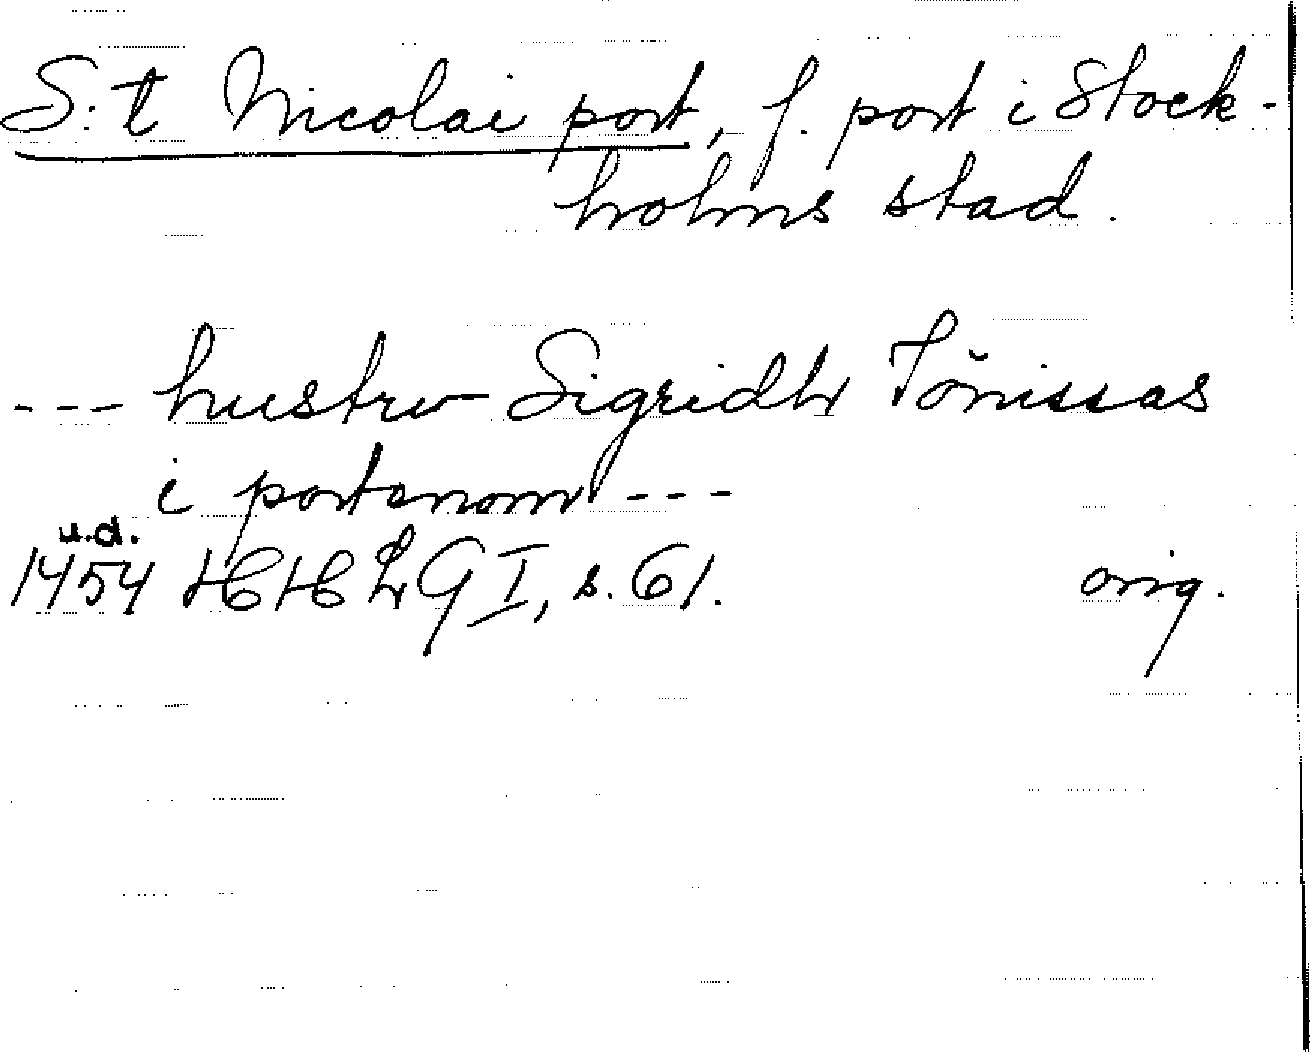 S:t Nicolai port, f. port i Stock-
holms stad.
--- hustrv Sigridh Tönissas
i portenom ---
u.d.
1454 HHLG I, s. 61. orig.